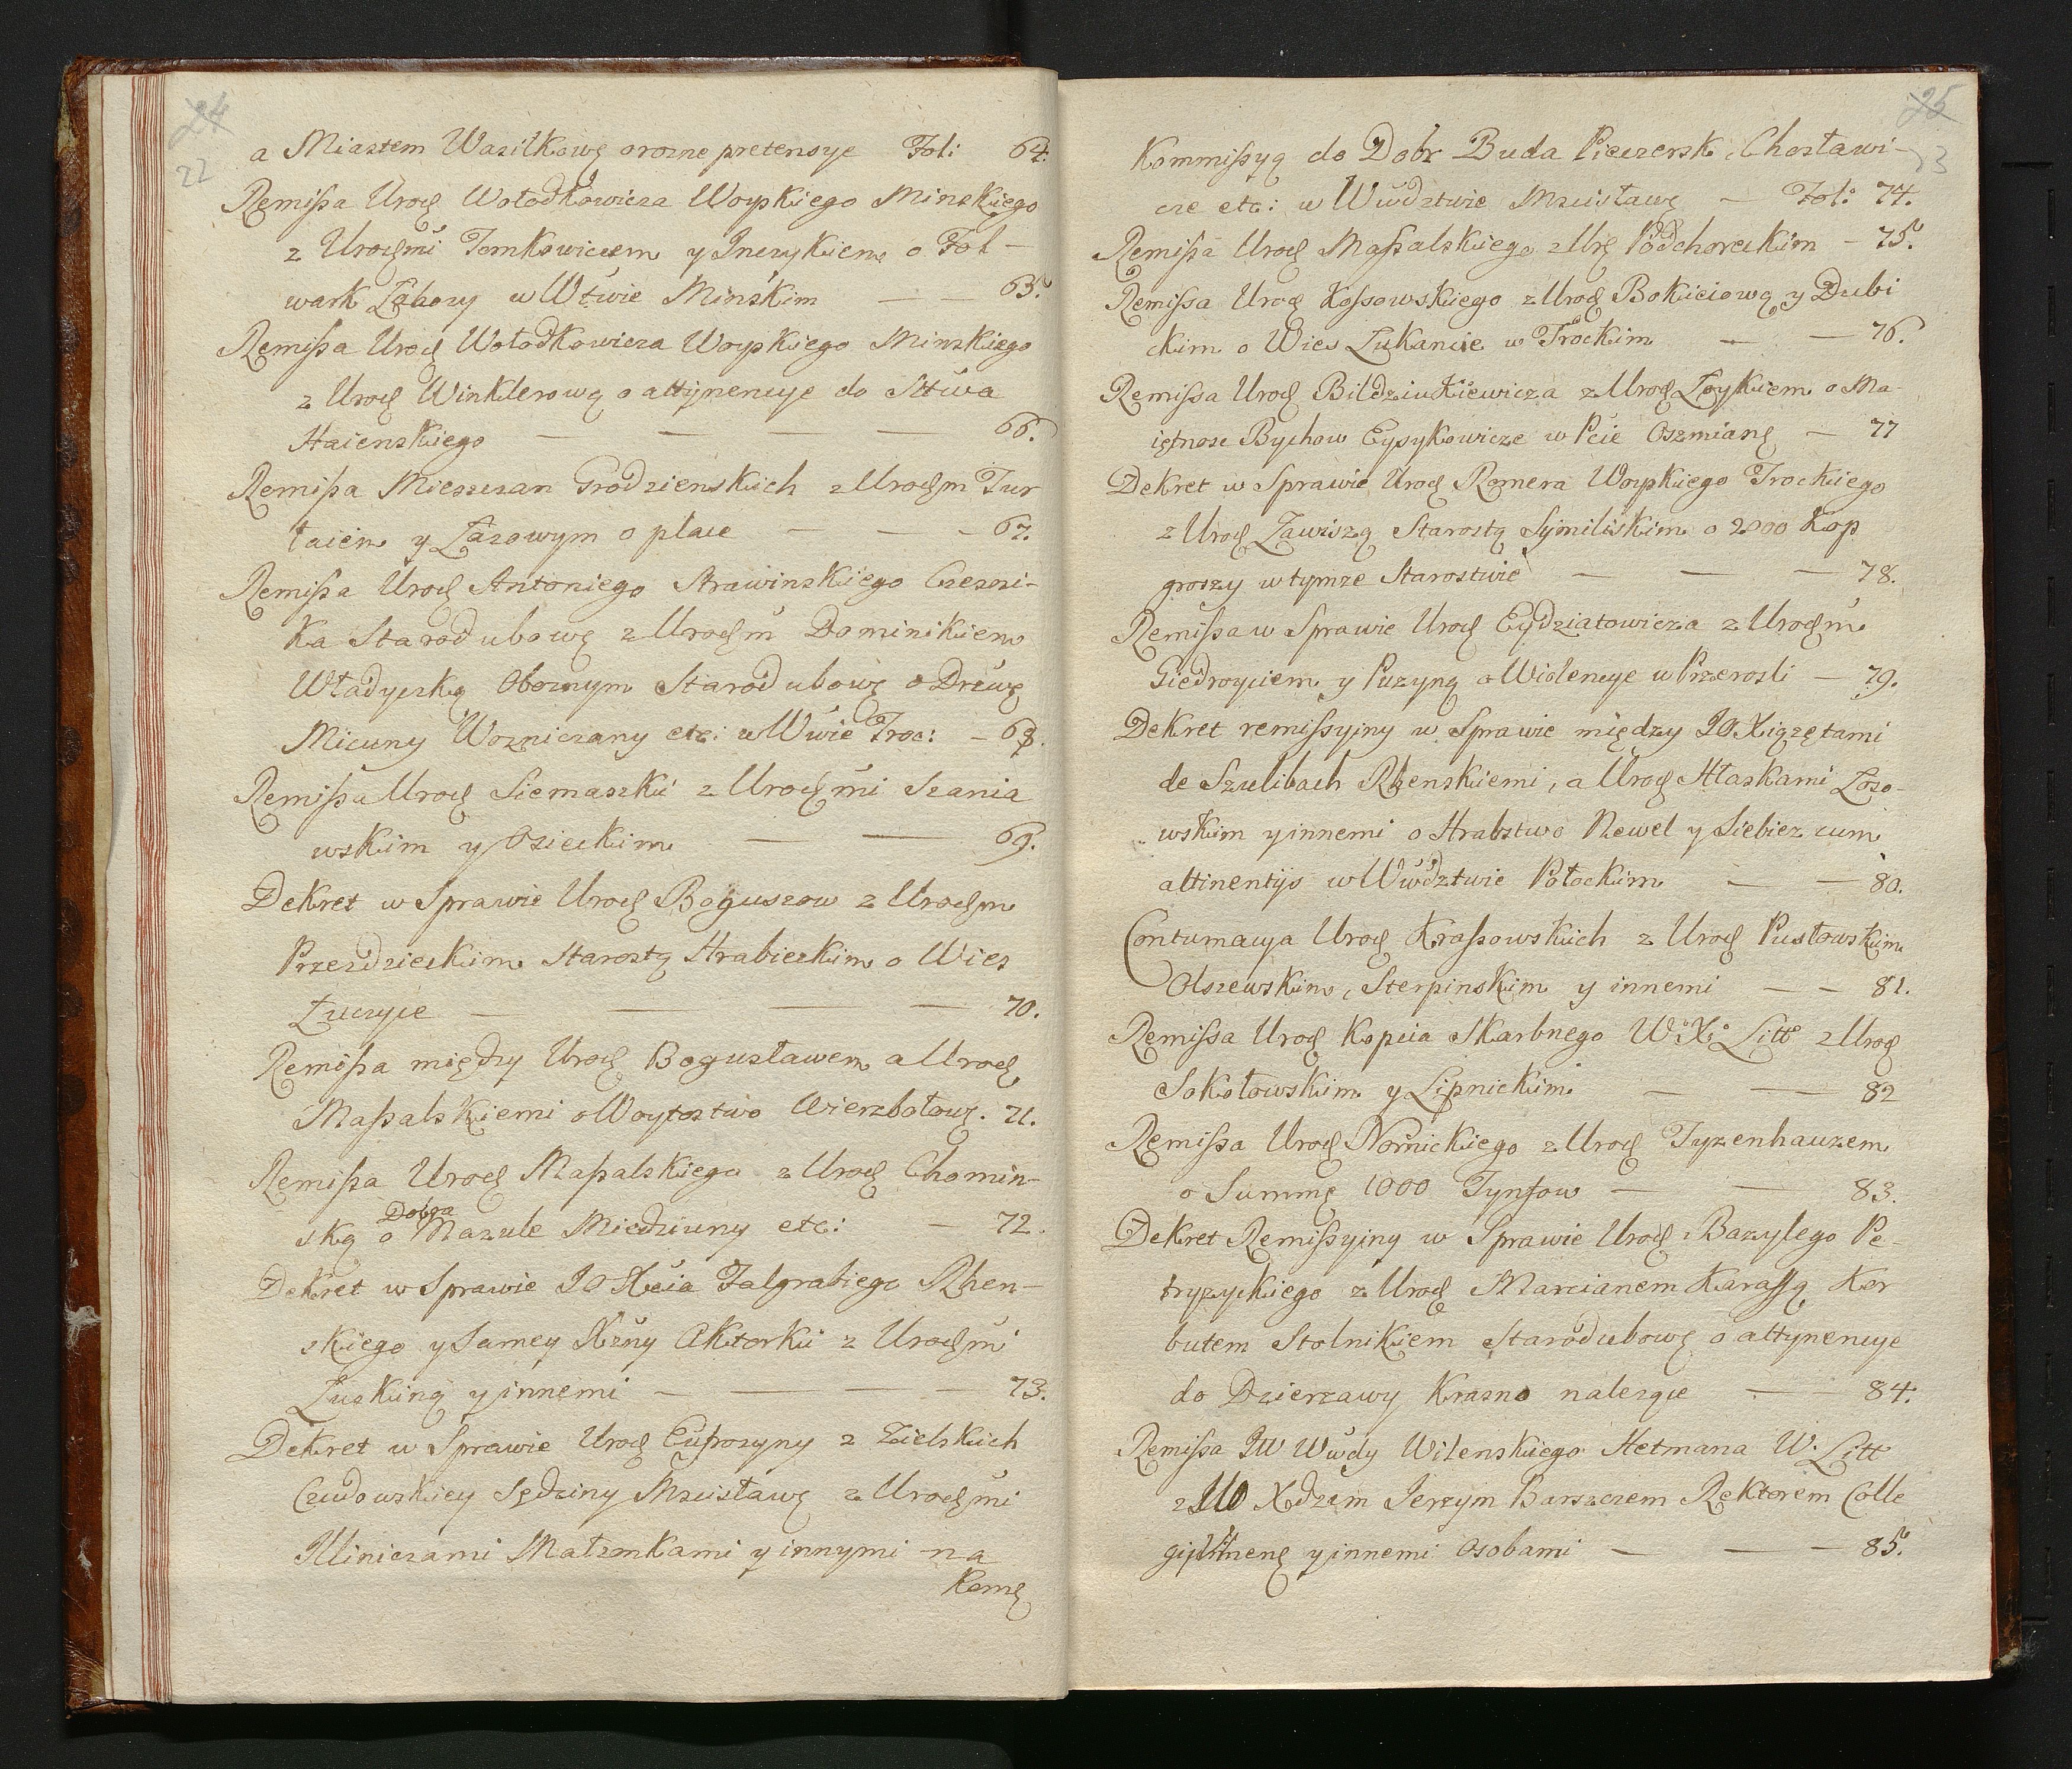 24
22
a Miastem Wasilkowę orozne pretensye Fol: 64.
Remissa Urodź Wołodkowicza Woyskiego Minskiego
z Urodźmi Tomkowiczem y Jnczykiem o Fol-
wark Zahory w Wtwie Minskim — — 65.
Remissa Urodź Wołodkowicza Woyskiego Minskiego
z Urodź Winklerową o attynencye do Sttwa
Haienskiego — — — — 66.
Remissa Mieszczan Grodzienskich z Urodźm Tur
taiem y Łazowym o place — — - 67.
Remissa Urodź Antoniego Strawinskiego Czesni-
ka Starodubowę z Urodźm Dominikiem
Władyczką Oboznym Starodubowę o Drewę
Micuny Wozniczany etc: w Wwie Troc: - 68.
Remissa Urodź Siemaszki z Urodźmi Szania
wskim y Osieckim — — 69.
Dekret w Sprawie Urodź Boguszow z Urodźm
Przezdzieckim Starostą Hrabieckim o Wies
Łuczyce — — — — 70.
Remissa między Urodź Bogusławem a Urodź
Massalskiemi o Woytostwo Wierzbołow. 71.
Remissa Urodź Massalskiego z Urodź Chomin-
Dobra
ską o Mazule Miedziuny etc: — 72.
Dekret w Sprawie JO Xcia Falgrabiego Rhen-
skiego y Samey Xzny Aktorki z Urodźmi
Łuskiną y innemi — — — — 73.
Dekret w Sprawie Urodź Eufrozyny z Zielskich
Czudowskiey Sędziny Mscisławę z Urodźmi
Illiniczami Małzonkami y innymi na
Komę
25
23
Kommissyą do Dobr Buda Pieczersk, Chosławi-
cze etc: w Wwdztwie Mscisławę — Fol: 74.
Remissa Urodź Massalskiego z Urź Podchoreckim - 75.
Remissa Urodź Kossowskiego z Urodź Bokiciową y Dubi
ckim o Wies Łukancie w Trockim — — 76.
Remissa Urodź Bildziukiewicza z Urodź Zoykiem o Ma-
iętnosc Bychow Eysykowicze w Pcie Oszmianę — 77
Dekret w Sprawie Urodź Romera Woyskiego Trockiego
z Urodź Zawiszą Starostą Symiliskim o 2000 Kop
groszy w tymze Starostwie — — — 78.
Remissa w Sprawie Urodź Eydziatowicza z Urodźm
Giedroyciem y Puzyną o Wiolencye w Przerosli — 79.
Dekret remissyiny w Sprawie między JO Xiązętami
de Szulibach Rhenskiemi, a Urodź Hłaskami Łozo-
wskim y innemi o Hrabstwo Newel y Siebiez cum
attinentijs w Wwdztwie Połockim — — 80.
Contumacya Urodź Krassowskich z Urodź Pusłowskim
Olszewskim, Sterpinskim y innemi — — 81.
Remissa Urodź Kopcia Skarbnego W. X. Litt z Urodź
Sokołowskim y Lipnickim — — 82
Remissa Urodź Nornickiego z Urodź Tyzenhauzem
o Summę 1000 Tynfow — — 83.
Dekret Remissyiny w Sprawie Urodź Bazylego Pe-
tryzyckiego z Urodź Marcianem Karassą Kor
butem Stolnikiem Starodubowę o attynencye
do Dzierzawy Krasno nalezące — 84.
Remissa JW Wwdy Wilenskiego Hetmana W. Litt
z WO Xdzem Jerzym Barszczem Rektorem Colle
gij Vilnenę y innemi osobami — — 85.